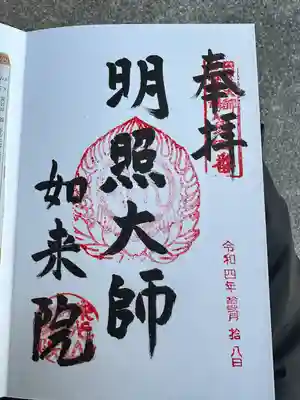 奉拝
明照大師
如来院
令和四年 月 拾八日